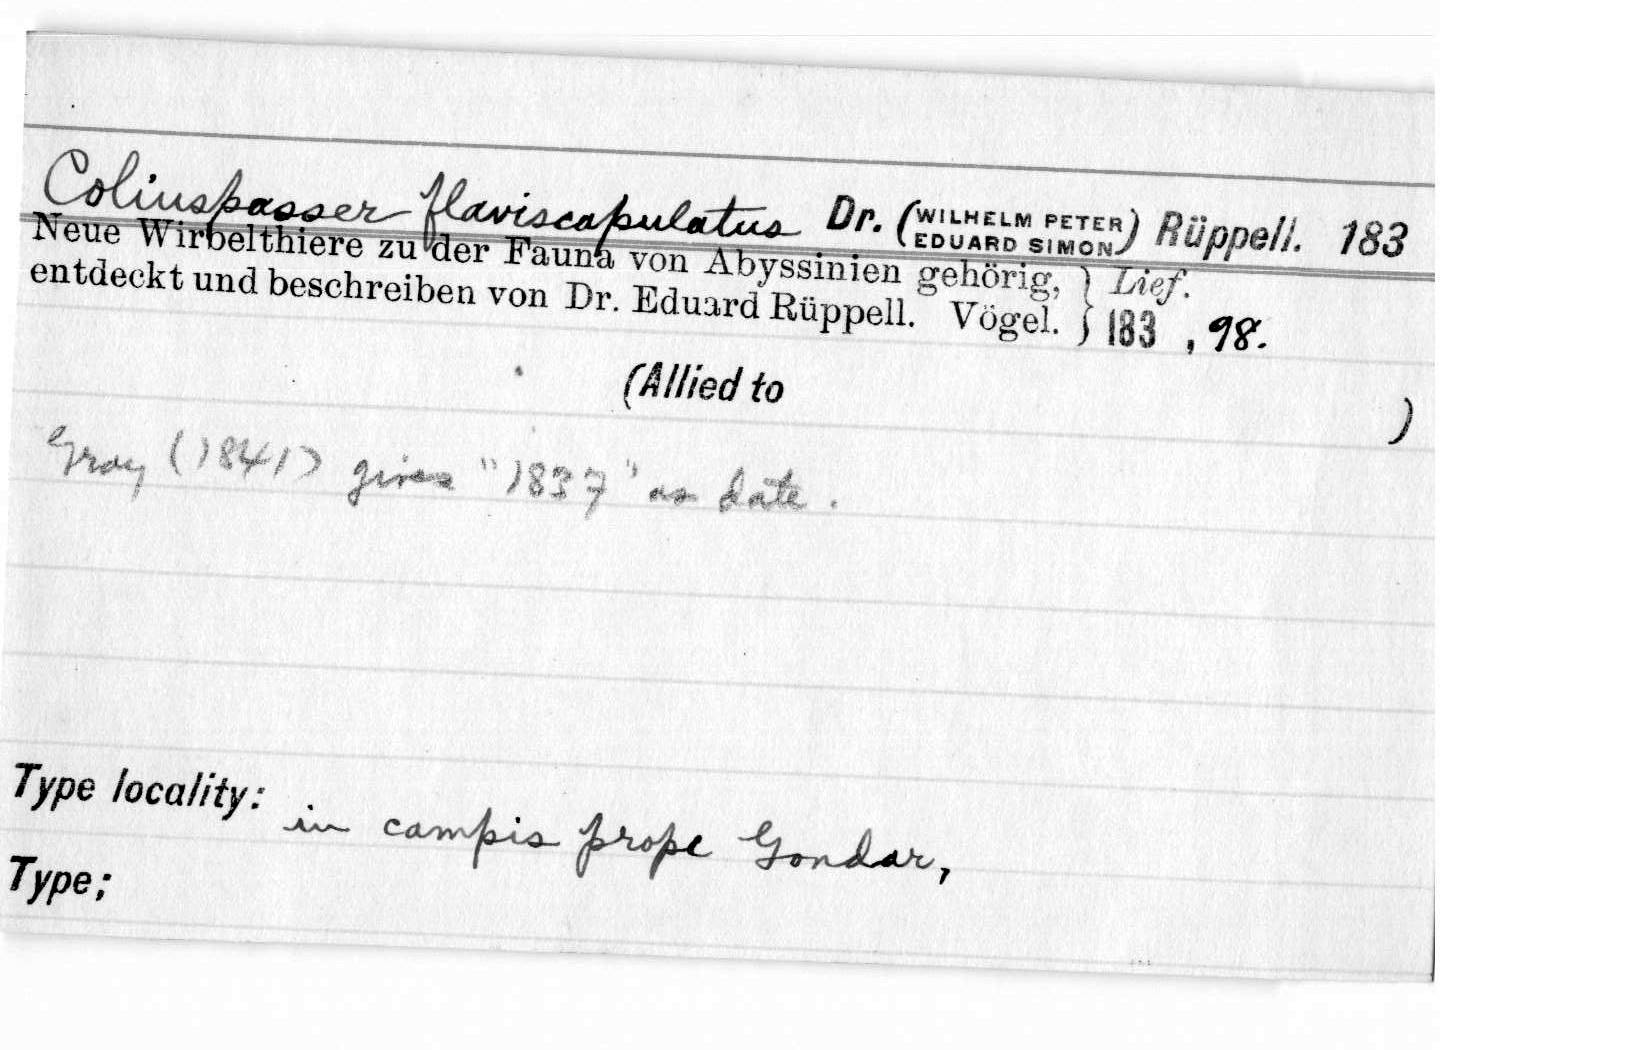 Coliuspasser flaviscapulatus Dr. (WILHELM PETER EDUARD SIMON) Rüppell. 183
Neue Wirbelthiere zu der Fauna von Abyssinien gehörig, } Lief.
entdeckt und beschreiben von Dr. Eduard Rüppell. Vögel. } 183 , 98.
(Allied to )
Gray (1841) gives "1837" as date.
Type locality: in campis prope Gondar,
Type;